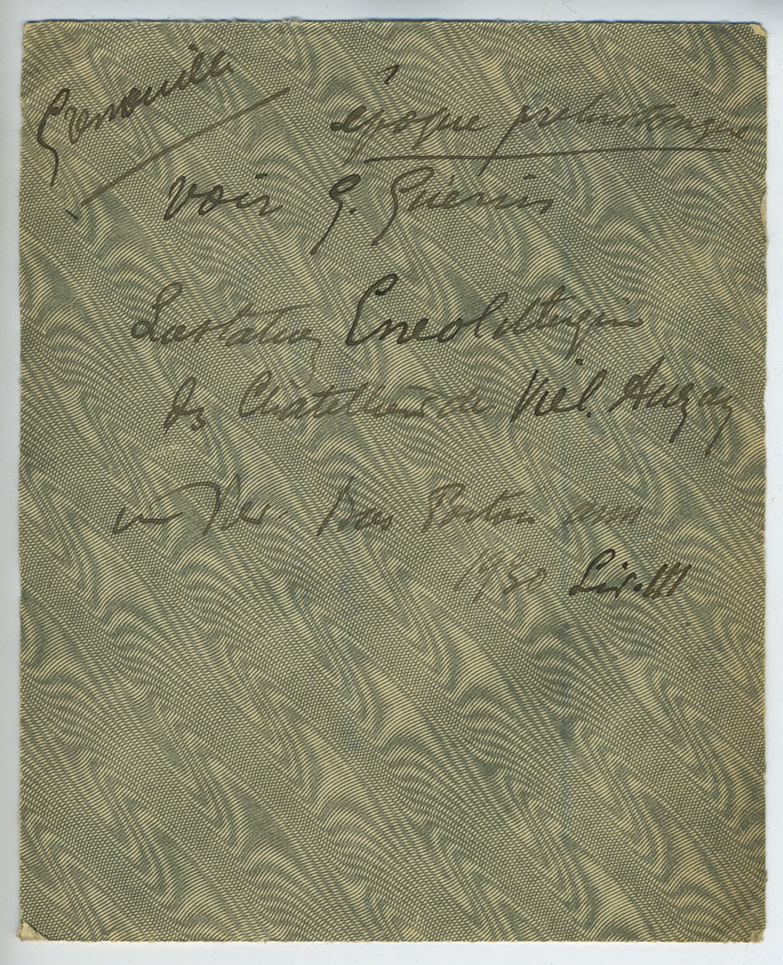 Grenouille
époque préhistorique
voir G. Guérin
La station Eneolithique
des Chatelliers du Vieil. Auzay
in Rev. Bas Poitou ann
1930 Liv. III